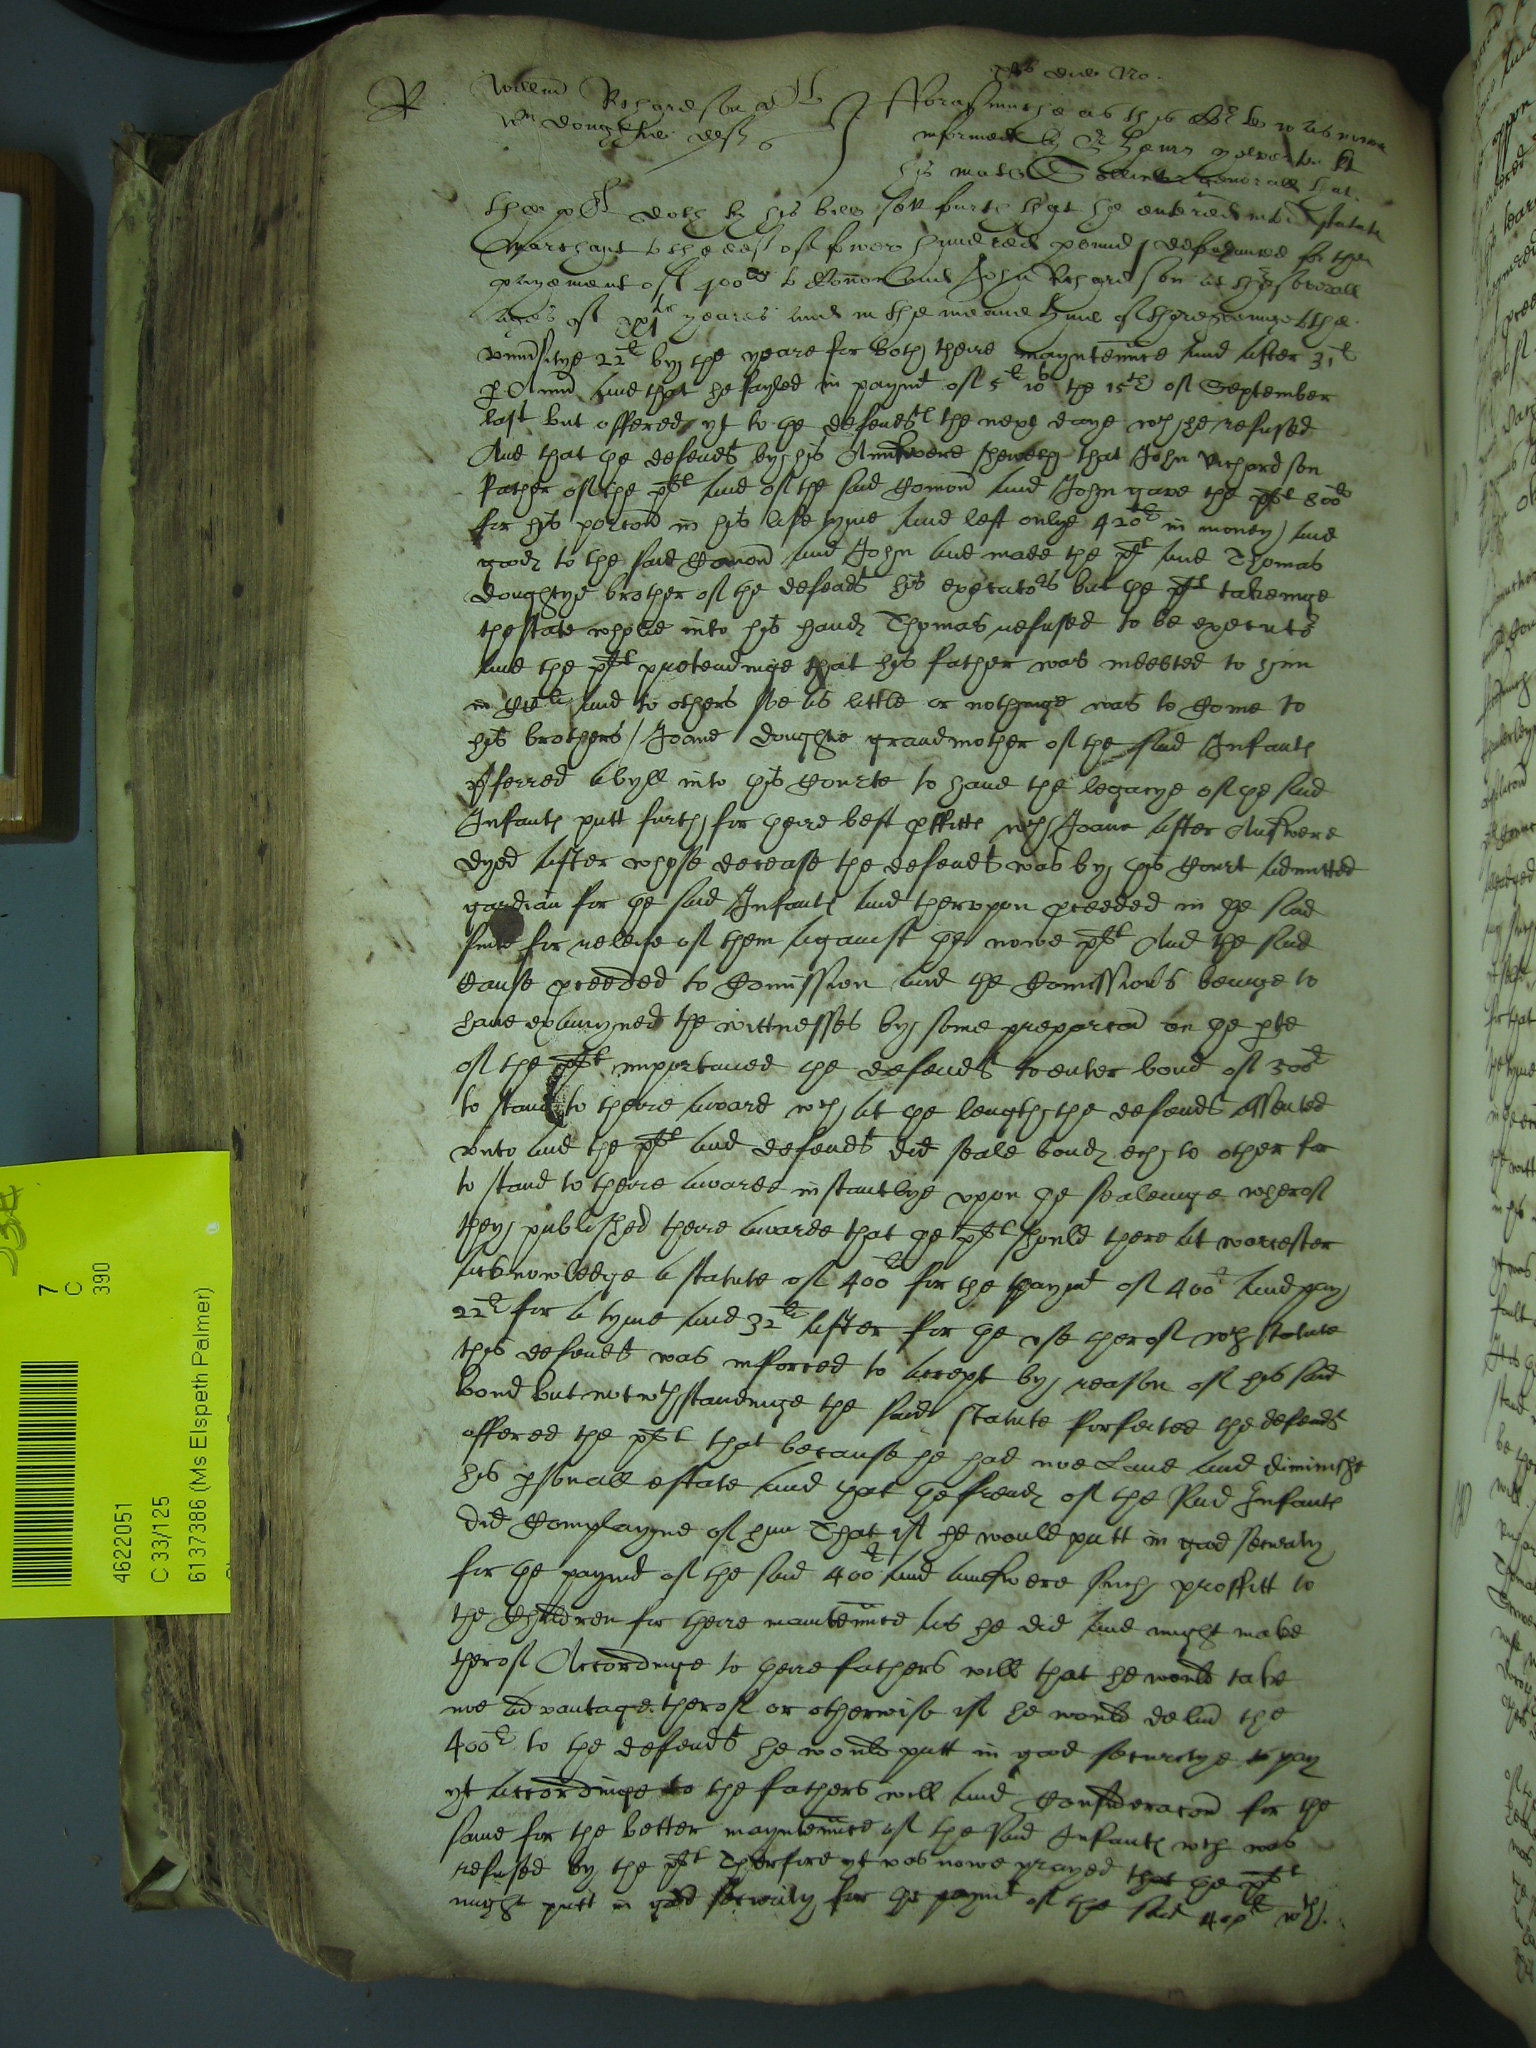 R
Willm Richardson pl
Wm Doughtie deft
fforasmuche as this Cort was nowe
informed by Sr Henry yelverton kt
his mats Sollicitor generall that
the plt doth by his bill sett furth that he entered into a statute
Marchant to the deft of fower hundred pounds defezanced for the
payement of 400li to Edmond and John Richardson at theis severall
ages of xxi yeares and in the meane tyme of theire beinge
22li by the yeare for both theire mayntennce and after 32li
p Annu and that he fayled in paymt of 5li 10s the 15th of September
last but offered yt to the defendt the next daye wch he refused
And that the defendt by his Aunswere sheweth that John Richardson
father of the plt and of the said Edmond and John gave the plt 800li
for his porcon in his life tyme and left onlye 420li in money and
goods to the said Edmond and John and made the plt and Thomas
Doughtye brother of the defendt his executors but the plt takeinge
thestate whole into his hands Thomas refused to be executor
and the plt pretendinge that his father was indebted to him
in and to others soe as little or nothinge was to Come to
his brothers / Joane Doughtie grandmother of the said Infants
pferred a byll into this Courte to have the legacye of the said
Infants putt furth for theire best pffitts wch Joane after Answere
dyed after whose decease the defendt was by this Court admitted
gardian for the said Infants and thervpon pceeded in the said
suite for releife of them against the nowe plt And the said
Cause pceeded to Comission and the Comissionrs beinge to
have examyned the wittnesses by some preparacon on the pte
of the plt importuned the defendt to enter bond of 500li
to stand to theire award wch at the length the defendt assented
vnto and the plt and defendt did seale bonds ech to other for
to stand to theire awarde instantlye vpon the sealeinge wherof
they published theire awarde that the plt should there at worcester
acknowledge a statute of 400li for the paymt of 400li and pay
22li for a tyme and 32li after for the vse therof wch statute
this defendt was inforced to accept by reason of his said
bond but notwthstandinge the said statute forfeited the defendt
offered the plt that because he had noe Land and diminishe
his psonall estate and that the frends of the said Infants
did Complayne of him That if he would putt in good securitye
for the paymt of the said 400li and answere such proffitt to
the Children for theire maintennce as he did and might make
therof Accordinge to theire fathers will that he would take
noe advantage therof or otherwise if he would delivr the
400li to the defendt he would putt in good securitye to pay
yt accordinge to the fathers will and Consideracon for the
same for the better mayntennce of the said Infants wch was
refused by the plt Therfore yt was nowe prayed that the plt
might putt in good securitye for the paymt of the said 400li wch
7
C
390
46222051
C 33/125
6137386 (Ms Elspeth Palmer)